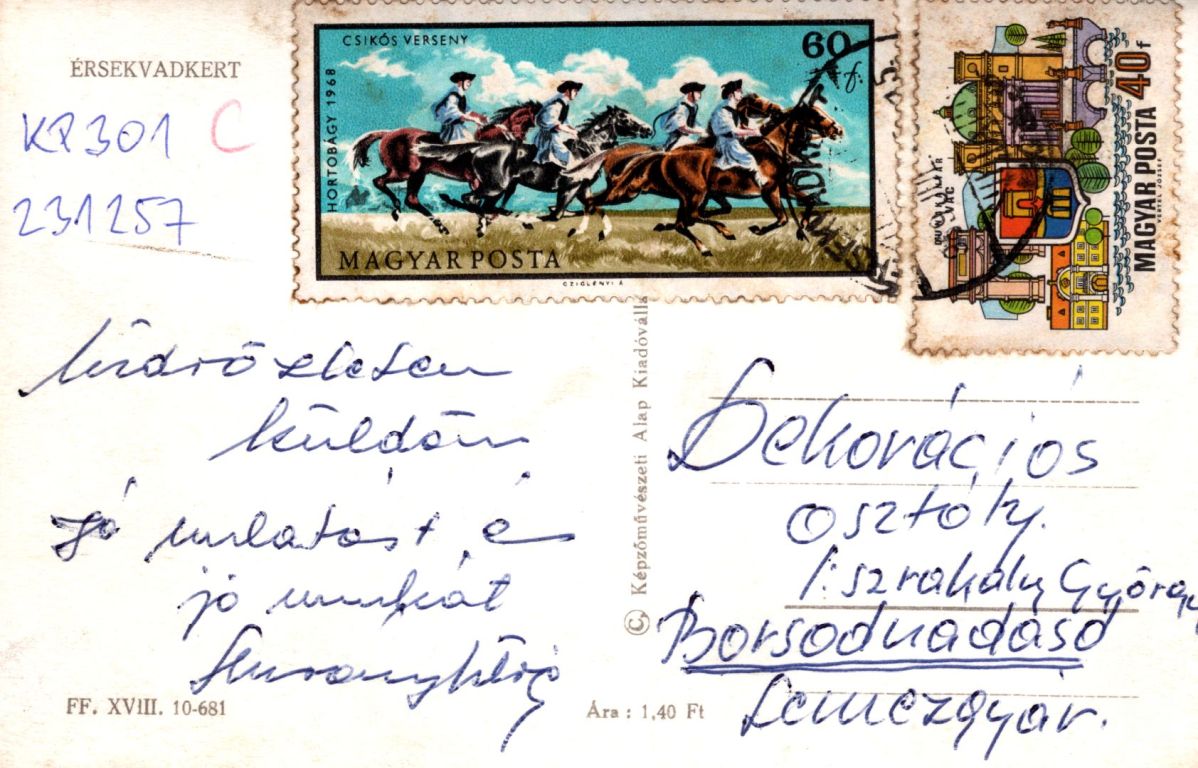 ÉRSEKVADKERT
KP301 C
231257
CSIKÓS VERSENY
60 f.
HORTOBÁGY 1968
MAGYAR POSTA
CZIGLÉNYI Á
MAGYAR POSTA 40 f
VÁC
VERTEL JÓZSEF
küldöm
Jó mulatást és
jó munkát
© Képzőművészeti Alap Kiadóválla
Dekorációs
osztály.
Iszrakály György
Borsodnádasd
Lemezgyár.
FF. XVIII. 10-681
Ára : 1,40 Ft